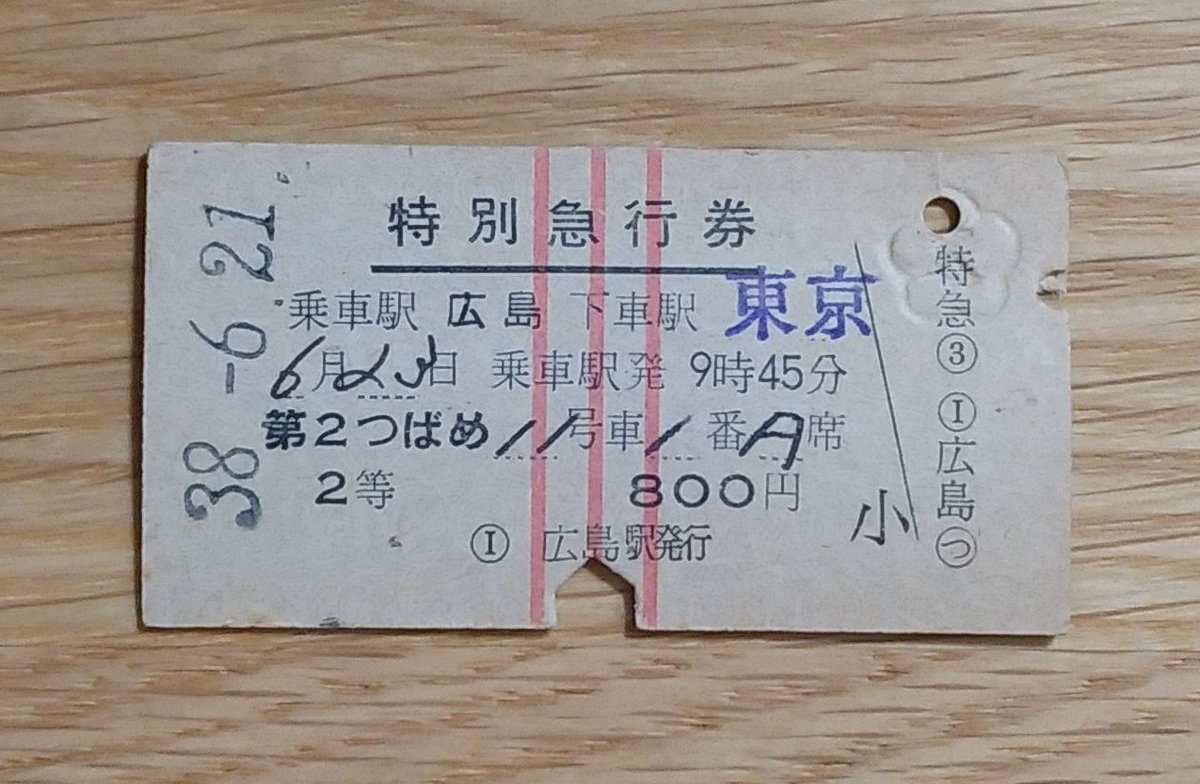 38-6.21
特別急行券
乗車駅 広島 下車駅 東京
6月23日 乗車駅発 9時45分
第2つばめ 11号車 1番A席
2等 800円
Ⓘ 広島駅発行
小
特急③ Ⓘ広島㋡